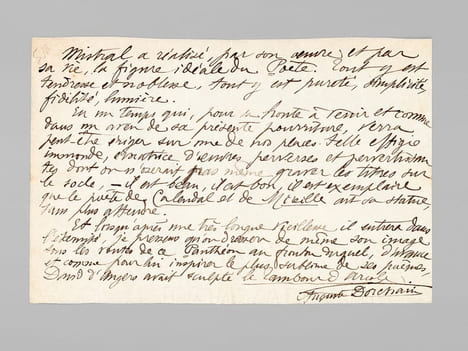 Mistral a réalisé, par son œuvre et par
sa vie, la figure idéale du Poète. Tout y est
tendresse et noblesse, tout y est pureté, simplicité
fidélité, lumière.
En un temps qui, pour sa honte à venir et comme
dans un aveu de sa présente pourriture, verra
peut-être ériger sur une de nos places telle effigie
immonde, créatrice d'œuvres perverses et
dont on n'oserait pas même graver les titres sur
le socle, – il est beau, il est bon, il est exemplaire
que le poète de Calendal et de Mireille ait sa statue
Et longtemps après une très longue vieillesse il entrera dans
qu'on dresse de même son image
sous les voûtes de ce Panthéon au fronton duquel, d'avance
et comme pour lui inspirer le plus sublime de ses poèmes,
David d'Angers avait sculpté le tambour d'Arcole.
Auguste Dorchain